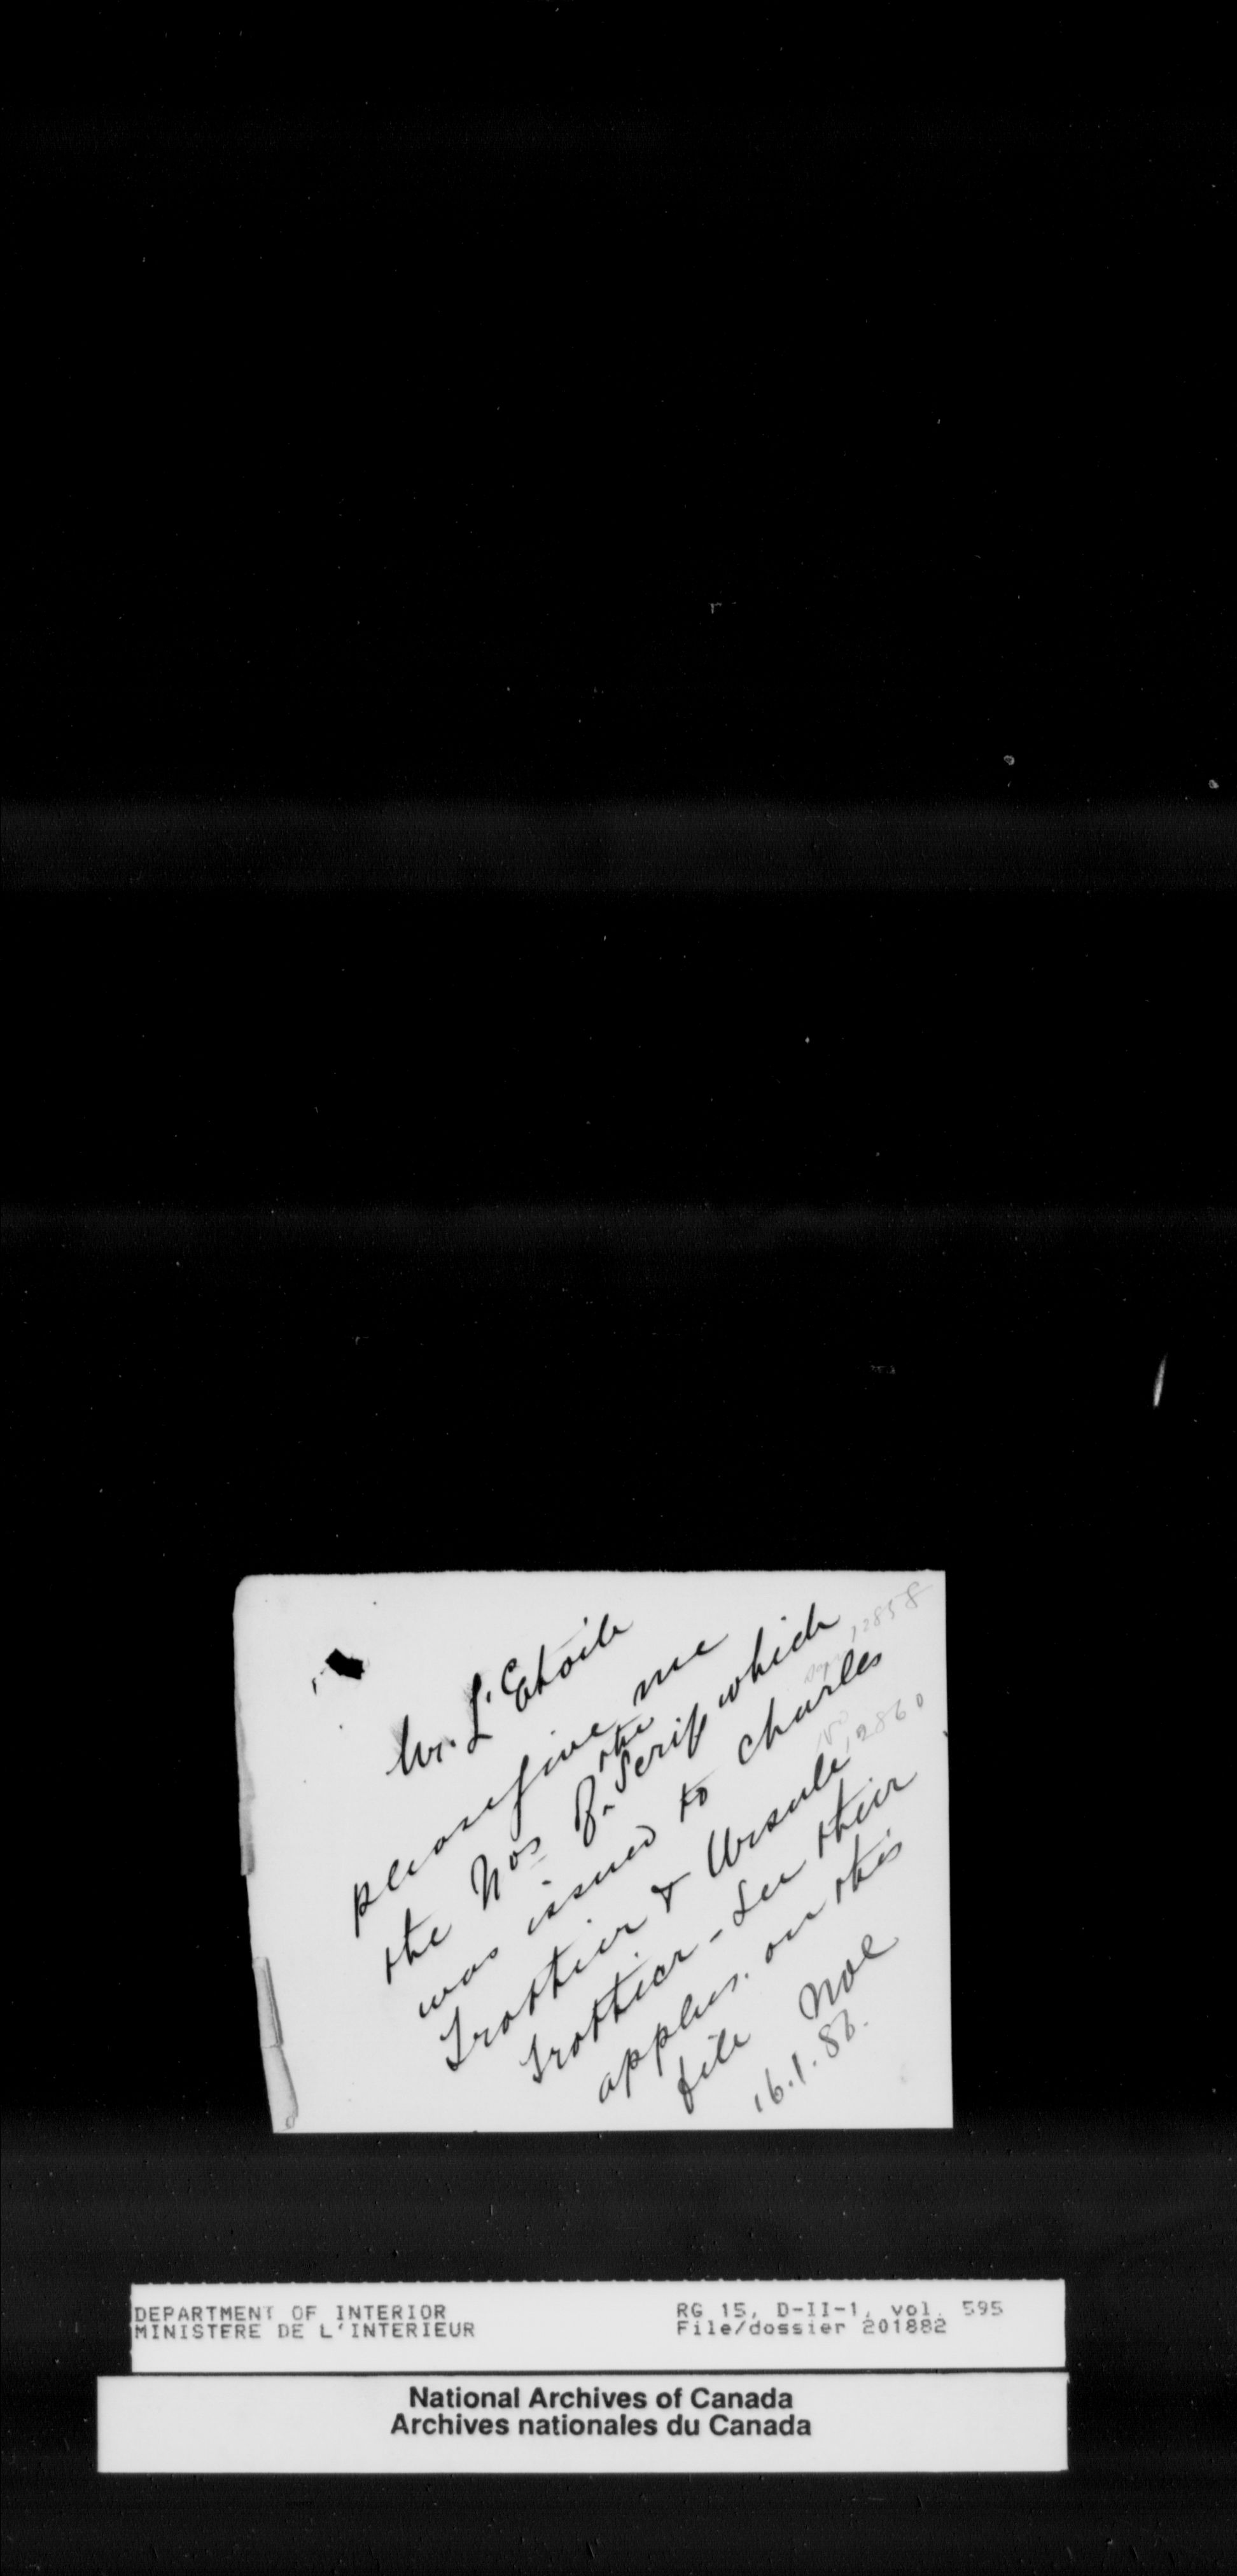 Mr. L'Etoile
please give me
the Nos of the Scrip which
was issued to Charles
Trottier & Ursule
Trottier - See their
applns. on this
file
16.1.86.
12858
No 12860
DEPARTMENT OF INTERIOR
MINISTERE DE L'INTERIEUR
RG 15, D-II-1, vol. 595
File/dossier 201882
National Archives of Canada
Archives nationales du Canada